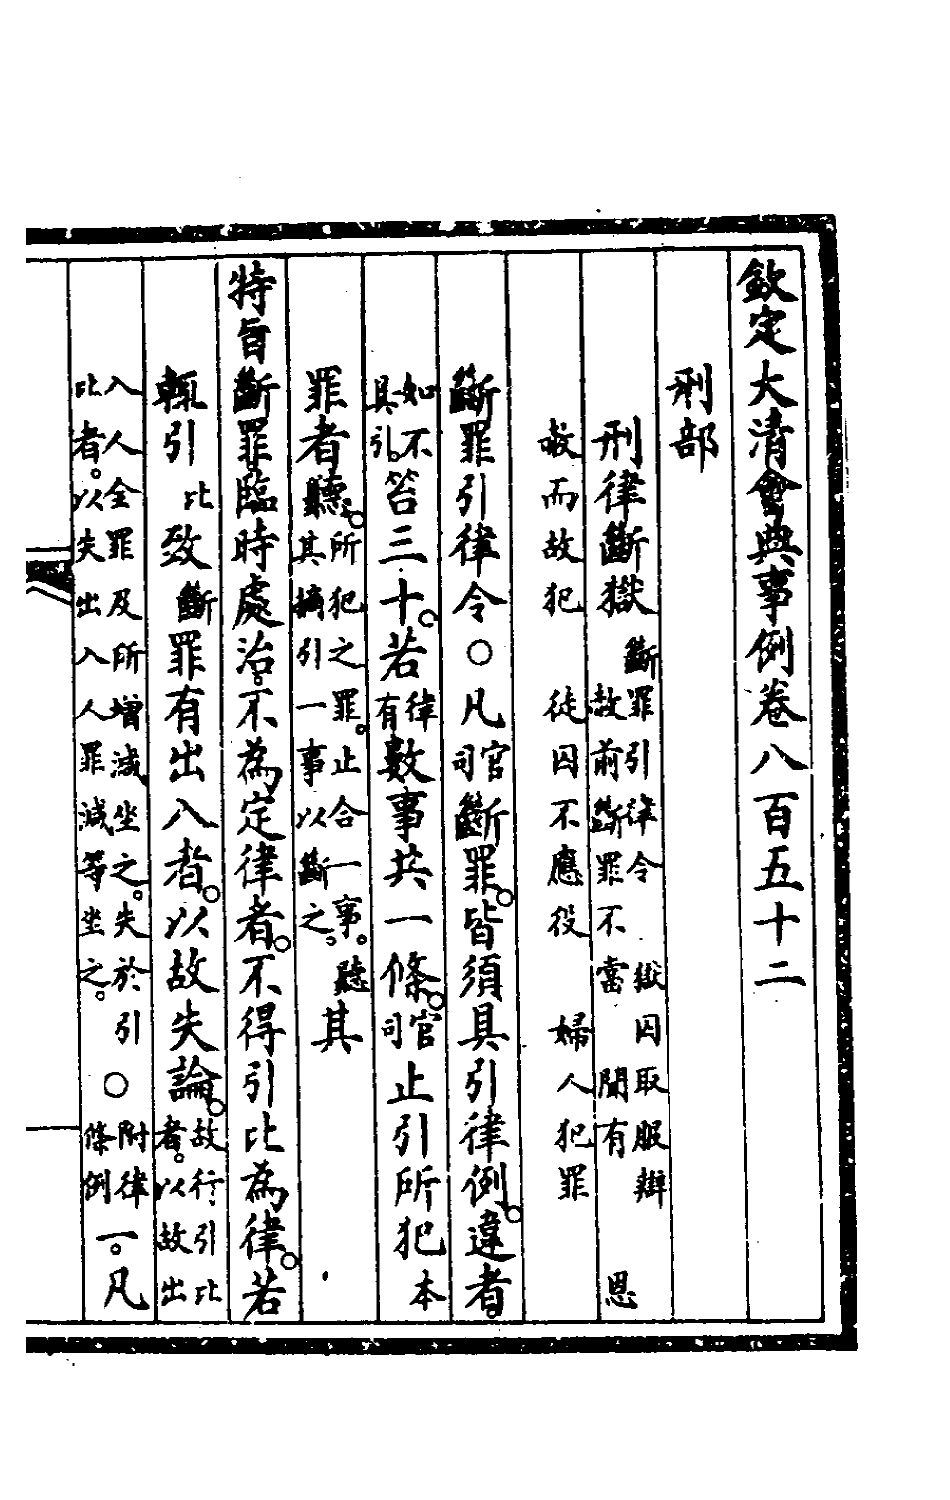 欽定大清會典事例卷八百五十二
刑部
刑律斷獄 斷罪引律令 獄囚取服辯 赦前斷罪不當 聞有恩
赦而故犯 徒囚不應役 婦人犯罪
斷罪引律令○凡官司斷罪。皆須具引律例。違者。
如不具引。笞三十。若律有數事共一條。官司止引所犯本
罪者聽。所犯之罪。止合一事。聽其摘引一事以斷之。其
特旨斷罪臨時處治。不為定律者。不得引比為律。若
輒引比致斷罪有出入者。以故失論。故行引比者。以故出
入人全罪及所增減坐之。失於引比者。以失出入人罪減等坐之。○附律條例一。凡